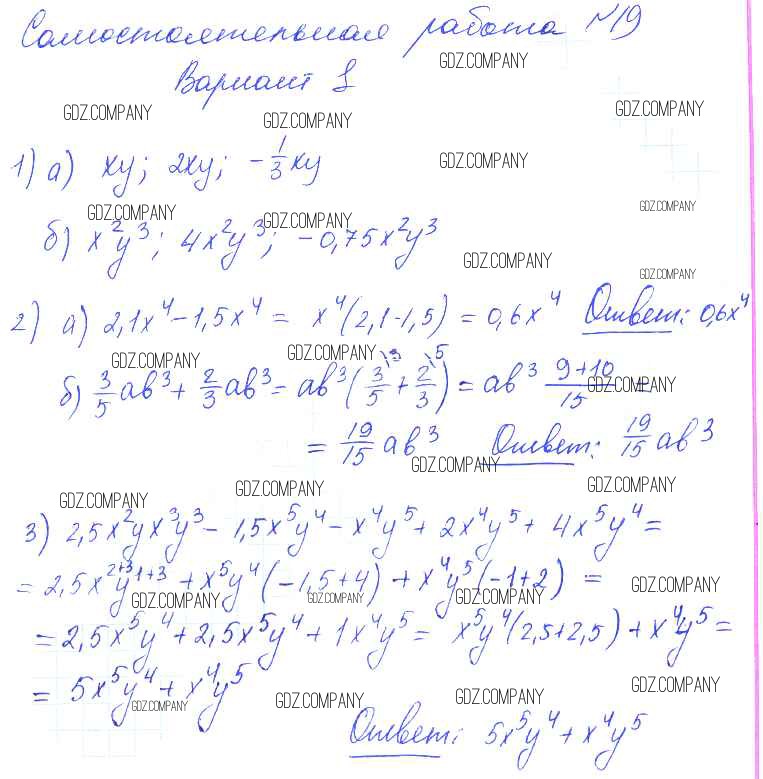 Самостоятельная работа №19
Вариант 1
GDZ.COMPANY GDZ.COMPANY GDZ.COMPANY GDZ.COMPANY
1) а) xy; 2xy; -1/3xy GDZ.COMPANY
GDZ.COMPANY GDZ.COMPANY GDZ.COMPANY
б) x²y³; 4x²y³; -0,75x²y³ GDZ.COMPANY GDZ.COMPANY
2) а) 2,1x⁴-1,5x⁴ = x⁴(2,1-1,5) = 0,6x⁴ Ответ: 0,6x⁴
GDZ.COMPANY GDZ.COMPANY GDZ.COMPANY
б) 3/5ab³ + 2/3ab³ = ab³(3/5\3 + 2/3\5) = ab³ (9+10)/15 =
= 19/15 ab³ Ответ: 19/15 ab³
GDZ.COMPANY
GDZ.COMPANY GDZ.COMPANY GDZ.COMPANY
3) 2,5x²yx³y³ - 1,5x⁵y⁴ - x⁴y⁵ + 2x⁴y⁵ + 4x⁵y⁴ =
= 2,5x²⁺³y¹⁺³ + x⁵y⁴(-1,5+4) + x⁴y⁵(-1+2) =
GDZ.COMPANY GDZ.COMPANY GDZ.COMPANY GDZ.COMPANY
= 2,5x⁵y⁴ + 2,5x⁵y⁴ + 1x⁴y⁵ = x⁵y⁴(2,5+2,5) + x⁴y⁵ =
= 5x⁵y⁴ + x⁴y⁵
GDZ.COMPANY GDZ.COMPANY GDZ.COMPANY GDZ.COMPANY
Ответ: 5x⁵y⁴ + x⁴y⁵